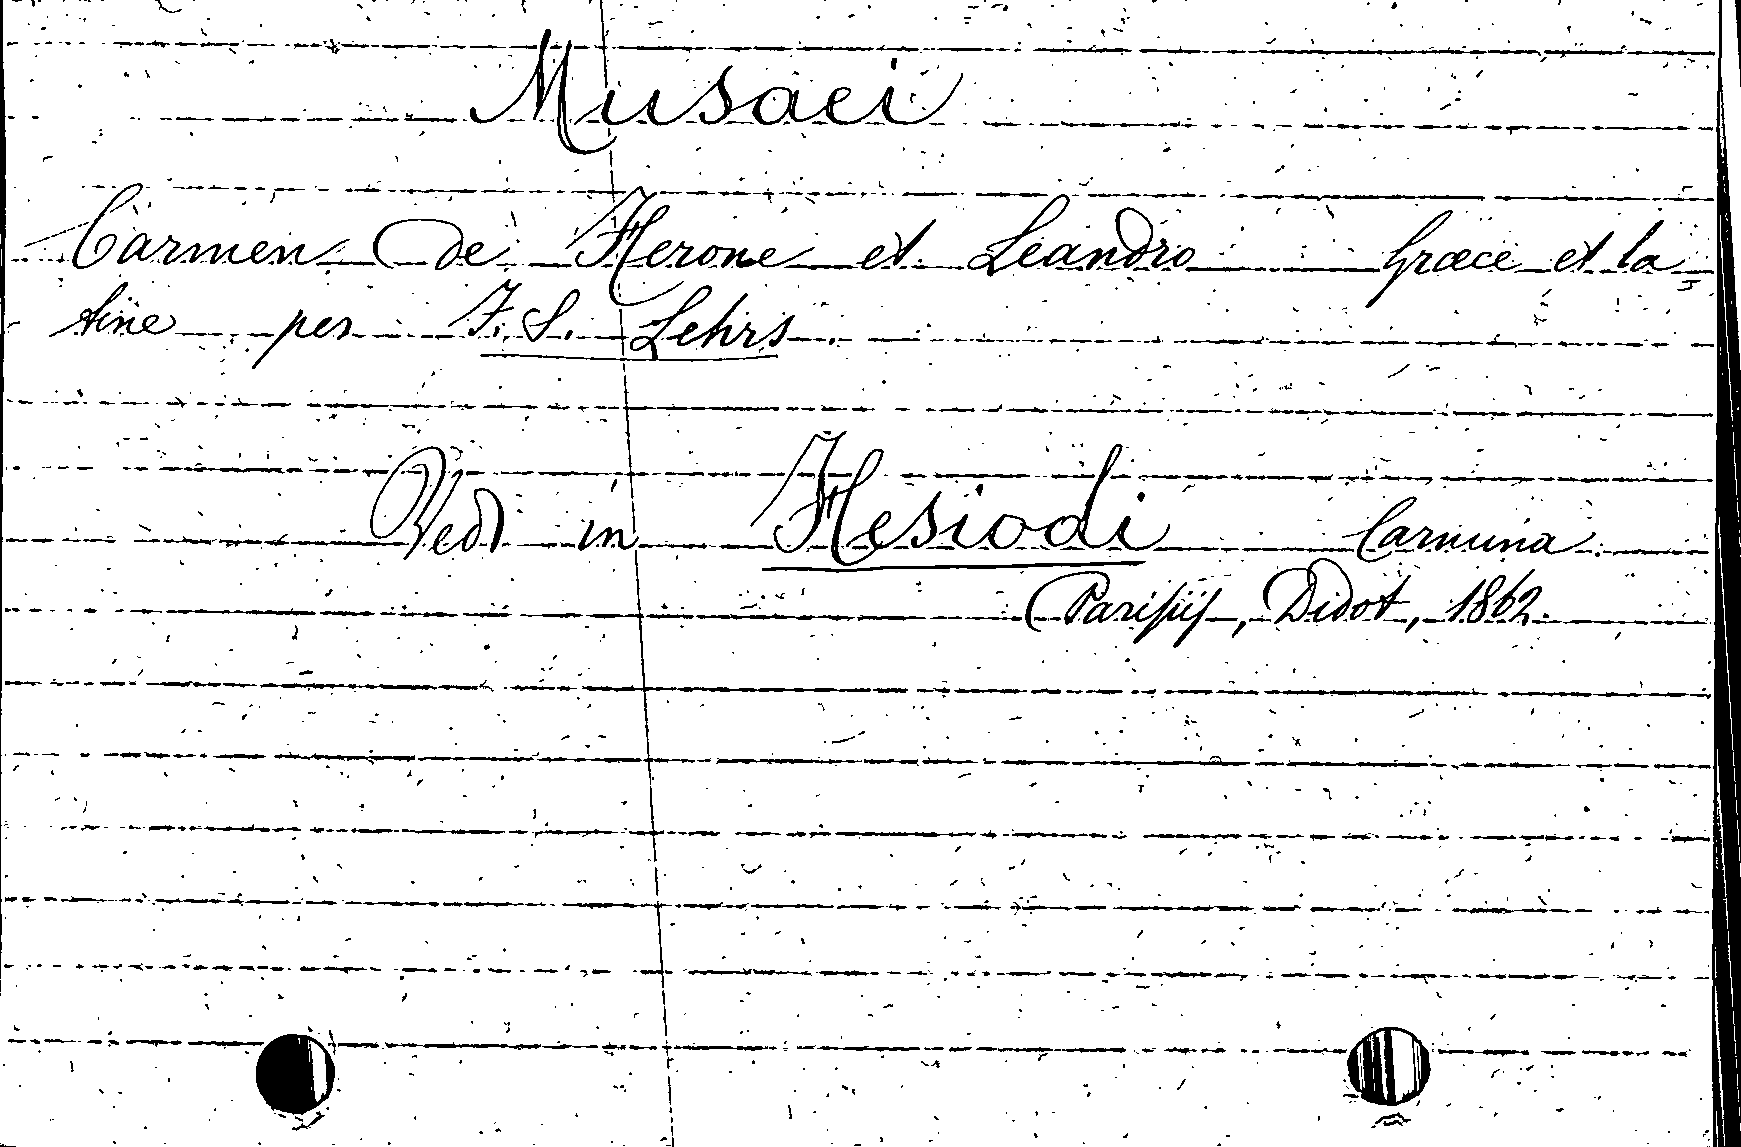 Musaei
Carmen de Herone et Leandro Graece et la
tine per F. S. Lehrs.
Vedi in Hesiodi Carmina.
Parisiis, Didot, 1862.